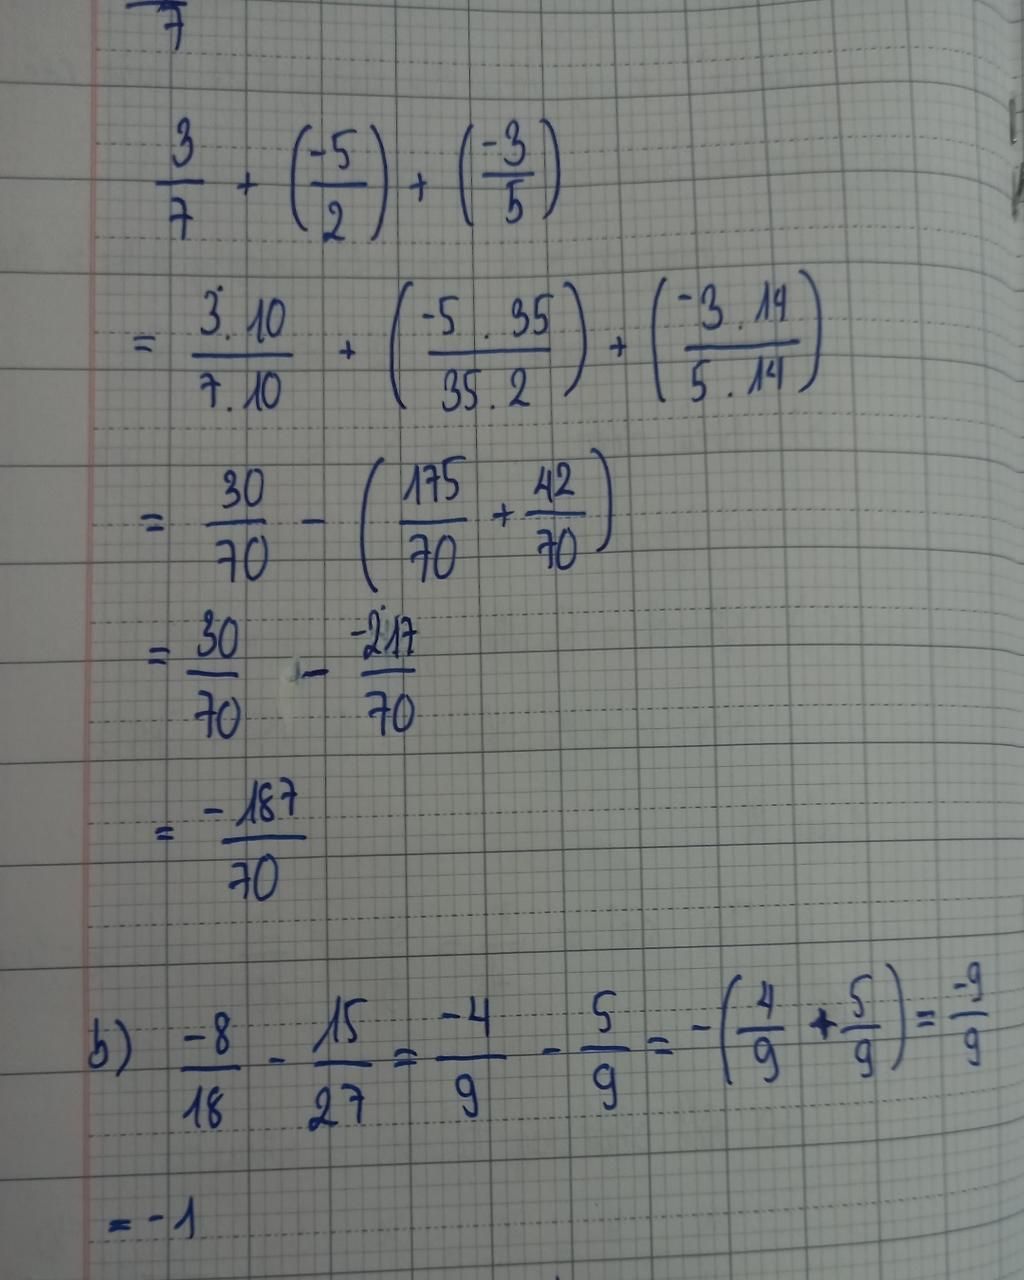 7
3/7 + (-5/2) + (-3/5)
= 3.10/7.10 + (-5.35/35.2) + (-3.14/5.14)
= 30/70 - (175/70 + 42/70)
= 30/70 - -217/70
= -187/70
b) -8/18 - 15/27 = -4/9 - 5/9 = -(4/9 + 5/9) = -9/9
= -1